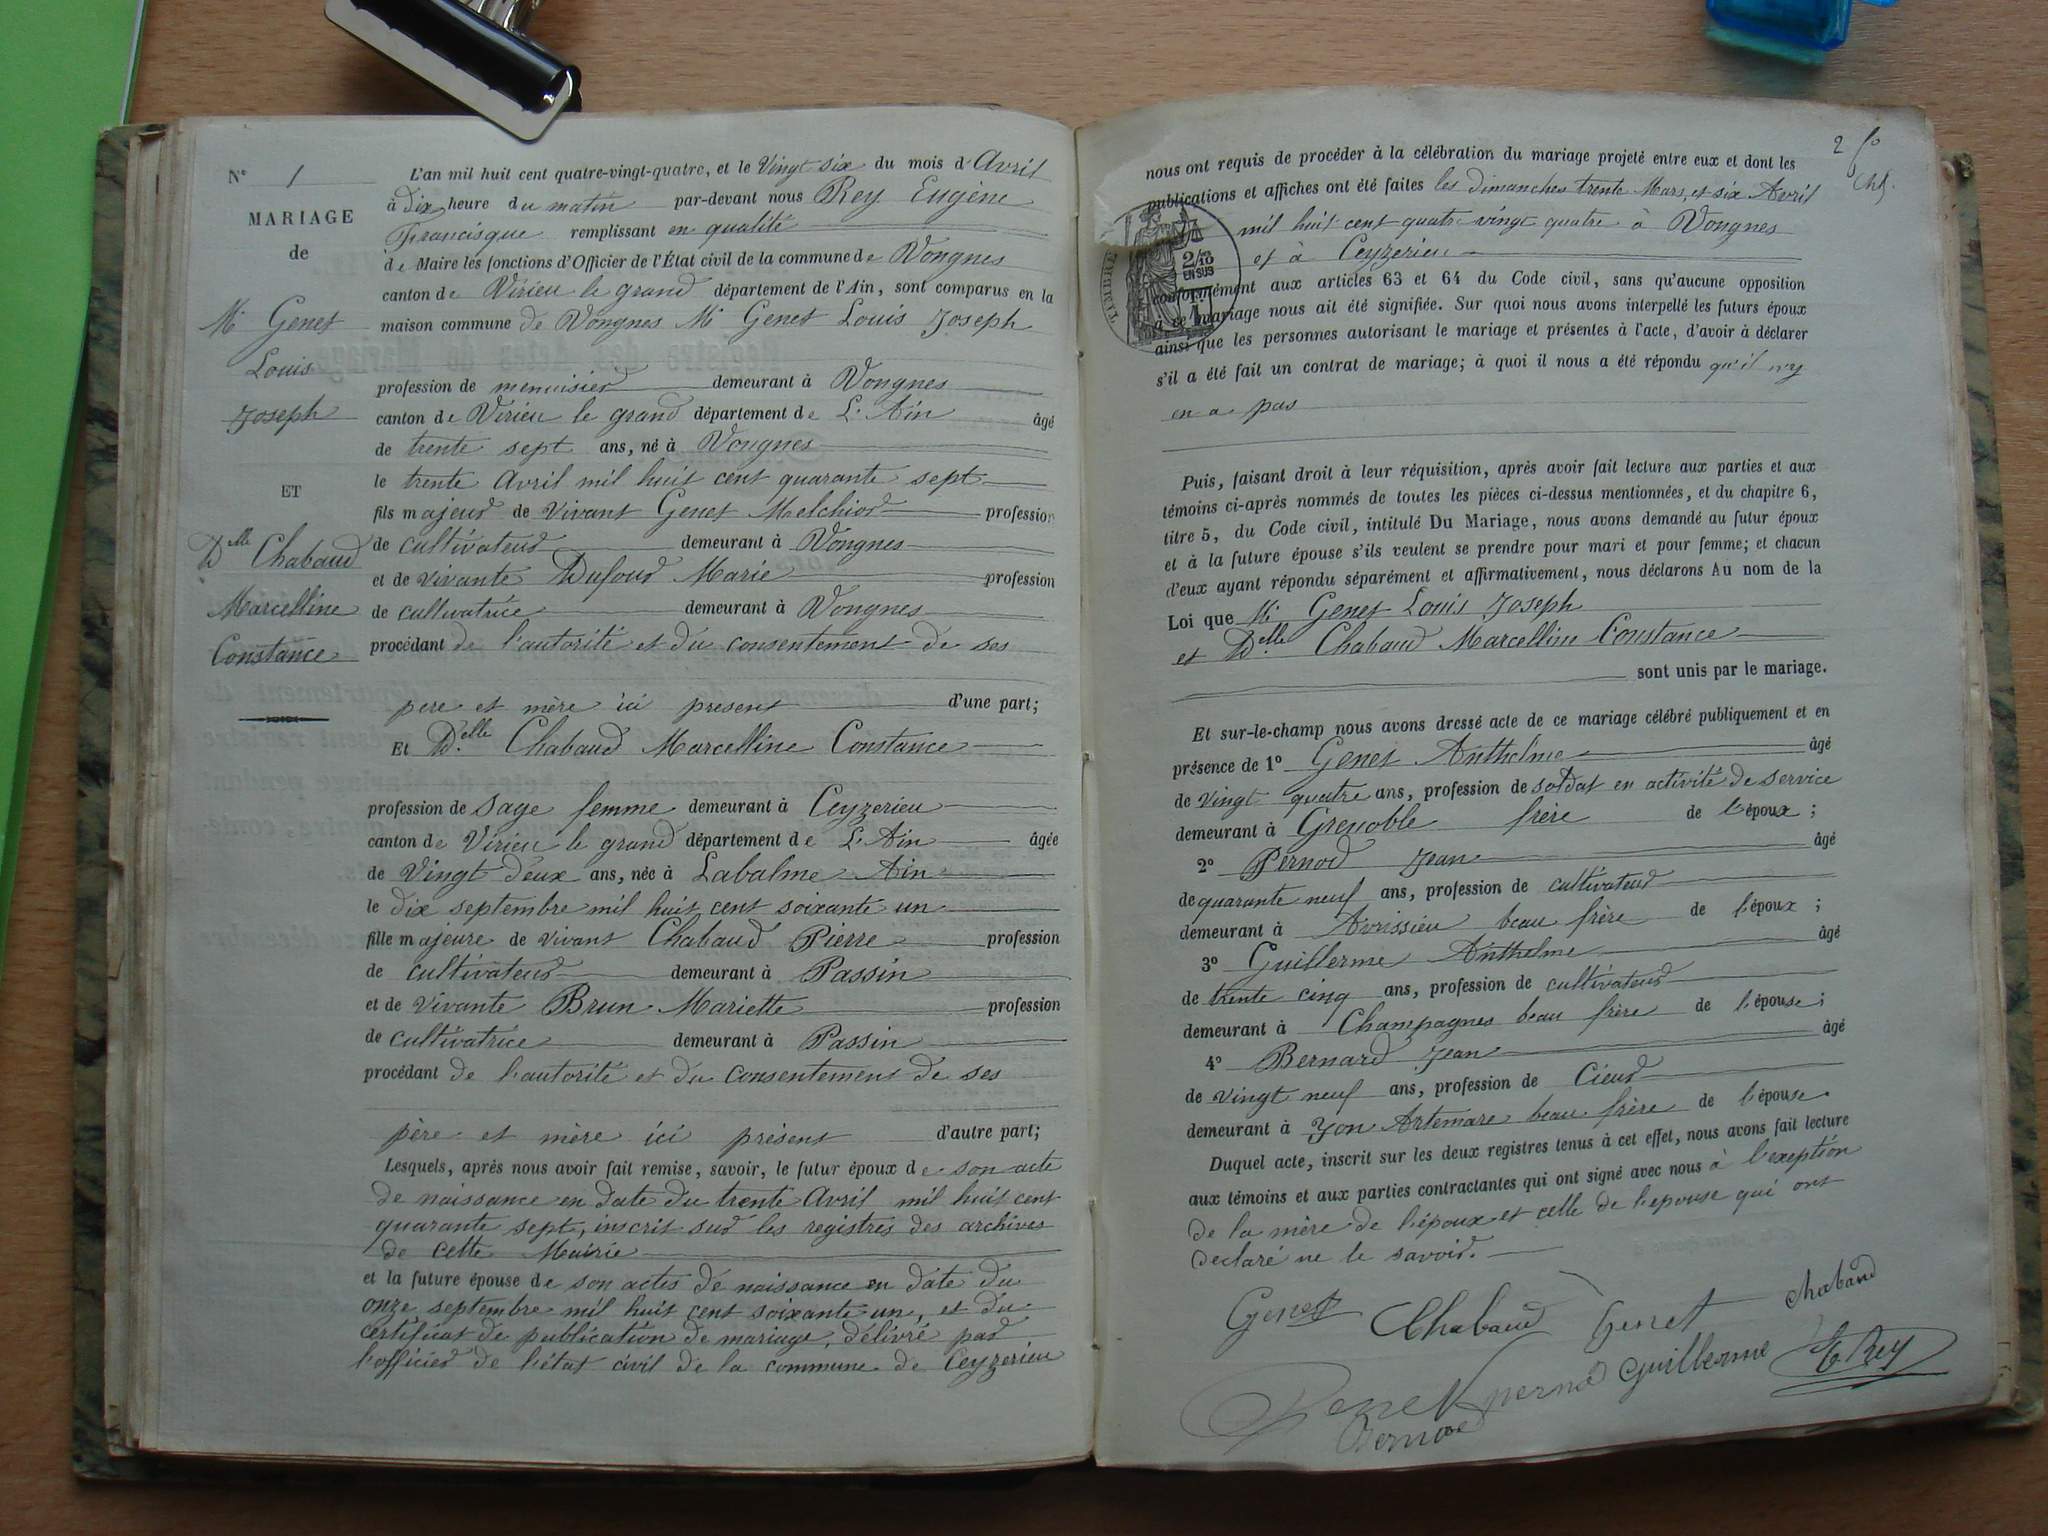 N° 1
MARIAGE
de
Mr Genet
Louis
Joseph
ET
Delle Chabaud
Marcelline
Constance
L'an mil huit cent quatre-vingt-quatre, et le Vingt six du mois d'Avril
à dix heure du matin par-devant nous Rey Eugène
Francisque remplissant en qualité
de Maire les fonctions d'Officier de l'État civil de la commune de Vongnes
canton de Virieu le grand département de l'Ain, sont comparus en la
maison commune de Vongnes Mr Genet Louis Joseph
profession de menuisier demeurant à Vongnes
canton de Virieu le grand département de L'Ain âgé
de trente sept ans, né à Vongnes
le trente Avril mil huit cent quarante sept
fils majeur de vivant Genet Melchior profession
de cultivateur demeurant à Vongnes
et de vivante Dufour Marie profession
de cultivatrice demeurant à Vongnes
procédant de l'autorité et du consentement de ses
pere et mère ici present d'une part;
Et Delle Chabaud Marcelline Constance
profession de sage femme demeurant à Ceyzerieu
canton de Virieu le grand département de L'Ain âgée
de Vingt deux ans, née à Labalme Ain
le dix septembre mil huit cent soixante un
fille majeure de vivant Chabaud Pierre profession
de cultivateur demeurant à Passin
et de vivante Brun Mariette profession
de cultivatrice demeurant à Passin
procédant de l'autorité et du consentement de ses
père et mère ici présent d'autre part;
Lesquels, après nous avoir fait remise, savoir, le futur époux de son acte
de naissance en date du trente Avril mil huit cent
quarante sept, inscrit sur les registres des archives
de cette Mairie
et la future épouse de son actes de naissance en date du
onze septembre mil huit cent soixante un, et du
certificat de publication de mariage, délivré par
l'officier de l'état civil de la commune de Ceyzerieu
2 fo
nous ont requis de procéder à la célébration du mariage projeté entre eux et dont les
publications et affiches ont été faites les dimanches trente Mars, et six Avril
mil huit cent quatre vingt quatre à Vongnes
et à Ceyzerieu
TIMBRE
2/10
EN SUS
conformément aux articles 63 et 64 du Code civil, sans qu'aucune opposition
a ce mariage nous ait été signifiée. Sur quoi nous avons interpellé les futurs époux
ainsi que les personnes autorisant le mariage et présentes à l'acte, d'avoir à déclarer
s'il a été fait un contrat de mariage; à quoi il nous a été répondu qu'il n'y
en a pas
Puis, faisant droit à leur réquisition, après avoir fait lecture aux parties et aux
témoins ci-après nommés de toutes les pièces ci-dessus mentionnées, et du chapitre 6,
titre 5, du Code civil, intitulé Du Mariage, nous avons demandé au futur époux
et à la future épouse s'ils veulent se prendre pour mari et pour femme; et chacun
d'eux ayant répondu séparément et affirmativement, nous déclarons Au nom de la
Loi que Mr Genet Louis Joseph
et Delle Chabaud Marcelline Constance
sont unis par le mariage.
Et sur-le-champ nous avons dressé acte de ce mariage célébré publiquement et en
présence de 1° Genet Anthelme âgé
de vingt quatre ans, profession de soldat en activité de service
demeurant à Grenoble frère de l'époux;
2° Pernod Jean âgé
de quarante neuf ans, profession de cultivateur
demeurant à Avrissieu beau frère de l'époux;
3° Guillerme Anthelme âgé
de trente cinq ans, profession de cultivateur
demeurant à Champagnes beau frère de l'épouse;
4° Bernard Jean âgé
de vingt neuf ans, profession de Cieur
demeurant à Yon Artemare beau frère de l'épouse.
Duquel acte, inscrit sur les deux registres tenus à cet effet, nous avons fait lecture
aux témoins et aux parties contractantes qui ont signé avec nous à l'exeption
de la mère de l'époux et celle de l'epouse qui ont
declaré ne le savoir.
Genet Chabaud Genet chabaud
Genet pernod Guillerme E. Rey